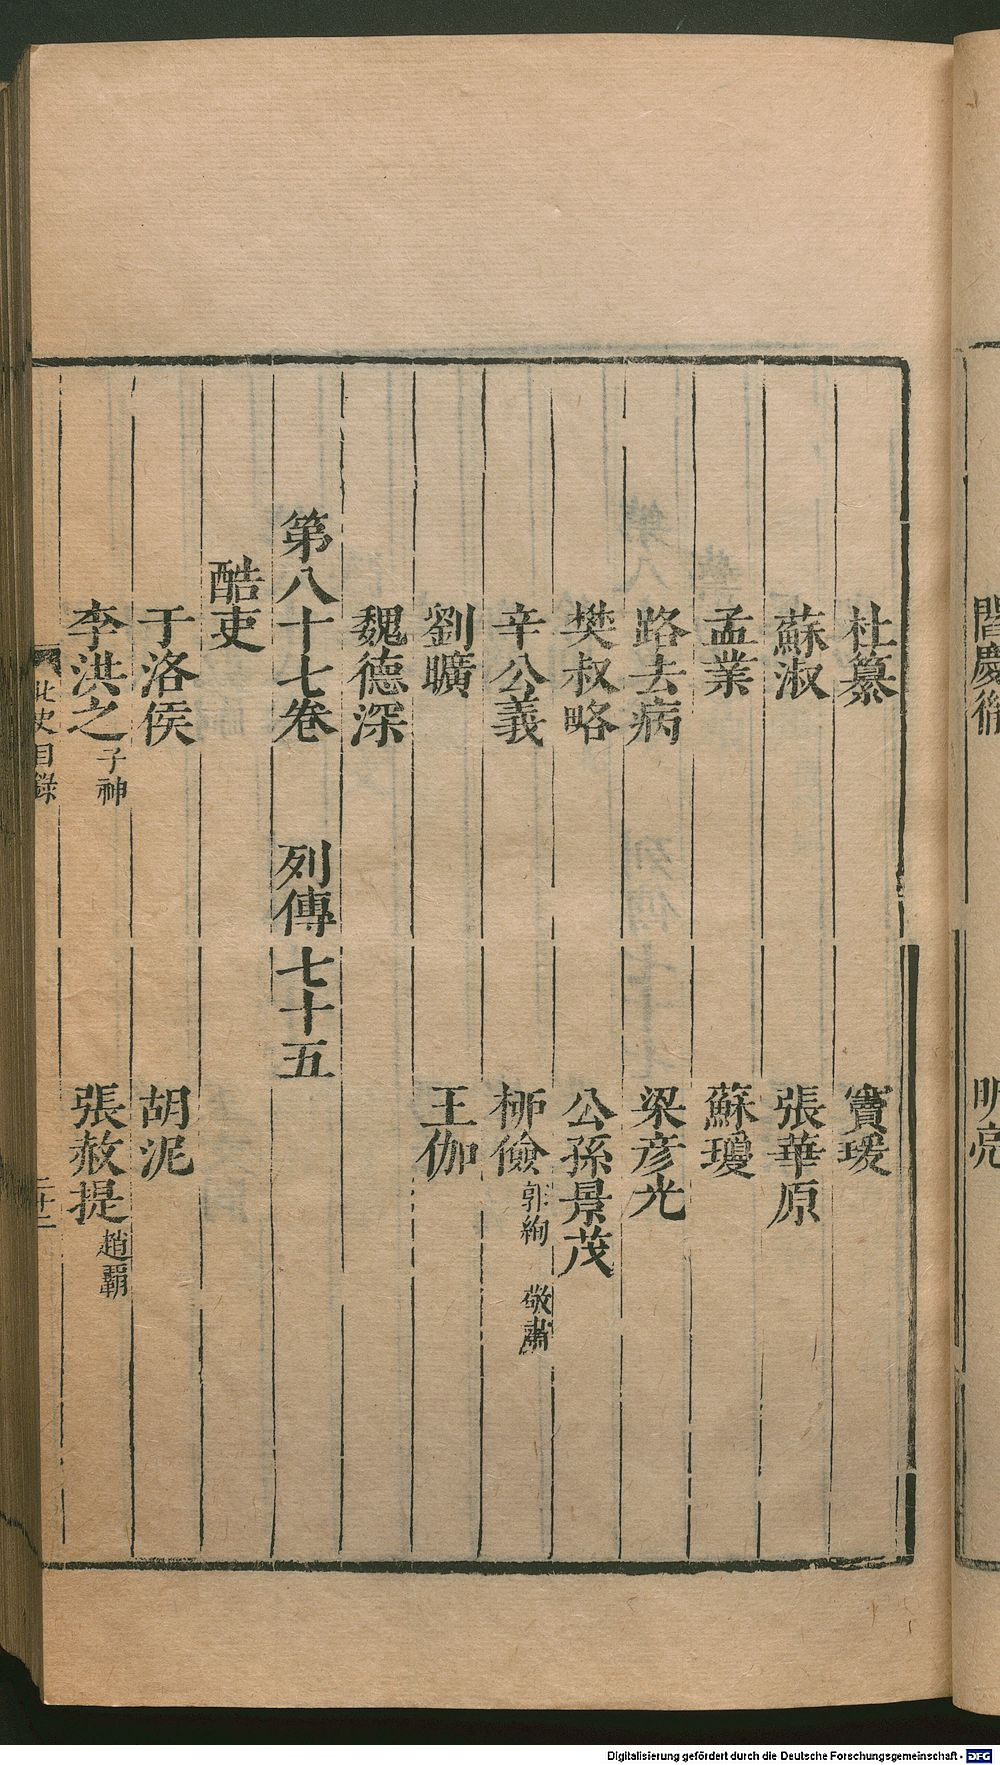 閻慶胤 明亮
杜纂 竇瑗
蘇淑 張華原
孟業 蘇瓊
路去病 梁彥光
樊叔略 公孫景茂
辛公義 柳儉 郭絢 敬肅
劉曠 王伽
魏德深
第八十七卷 列傳七十五
酷吏
于洛侯 胡泥
李洪之 子神 張赦提 趙霸
北史目錄 二十二
Digitalisierung gefördert durch die Deutsche Forschungsgemeinschaft - DFG